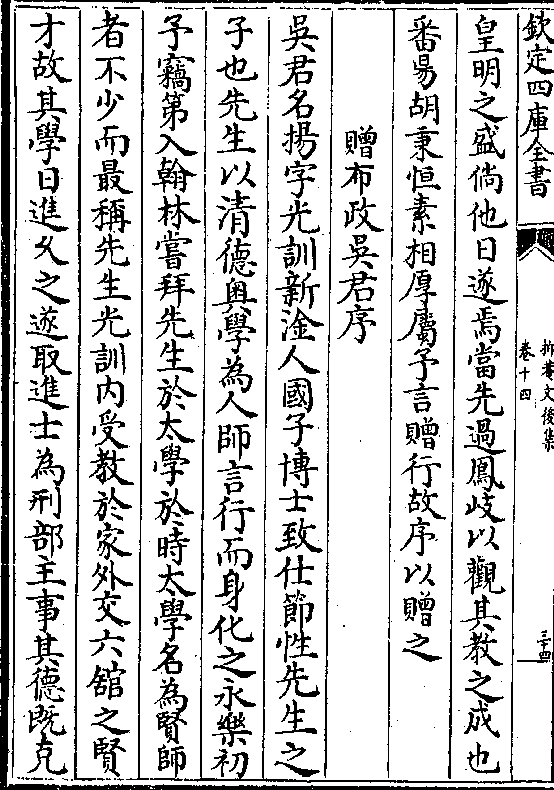 欽定四庫全書
抑菴文後集
卷十四
三十四
皇明之盛倘他日遂焉當先過鳳岐以觀其教之成也
番昜胡秉恒素相厚屬予言贈行故序以贈之
贈布政吳君序
吳君名揚字光訓新淦人國子博士致仕節性先生之
子也先生以清德奥學為人師言行而身化之永樂初
予竊第入翰林嘗拜先生於太學於時太學名為賢師
者不少而最稱先生光訓内受教於家外交六舘之賢
才故其學日進久之遂取進士為刑部主事其德既克